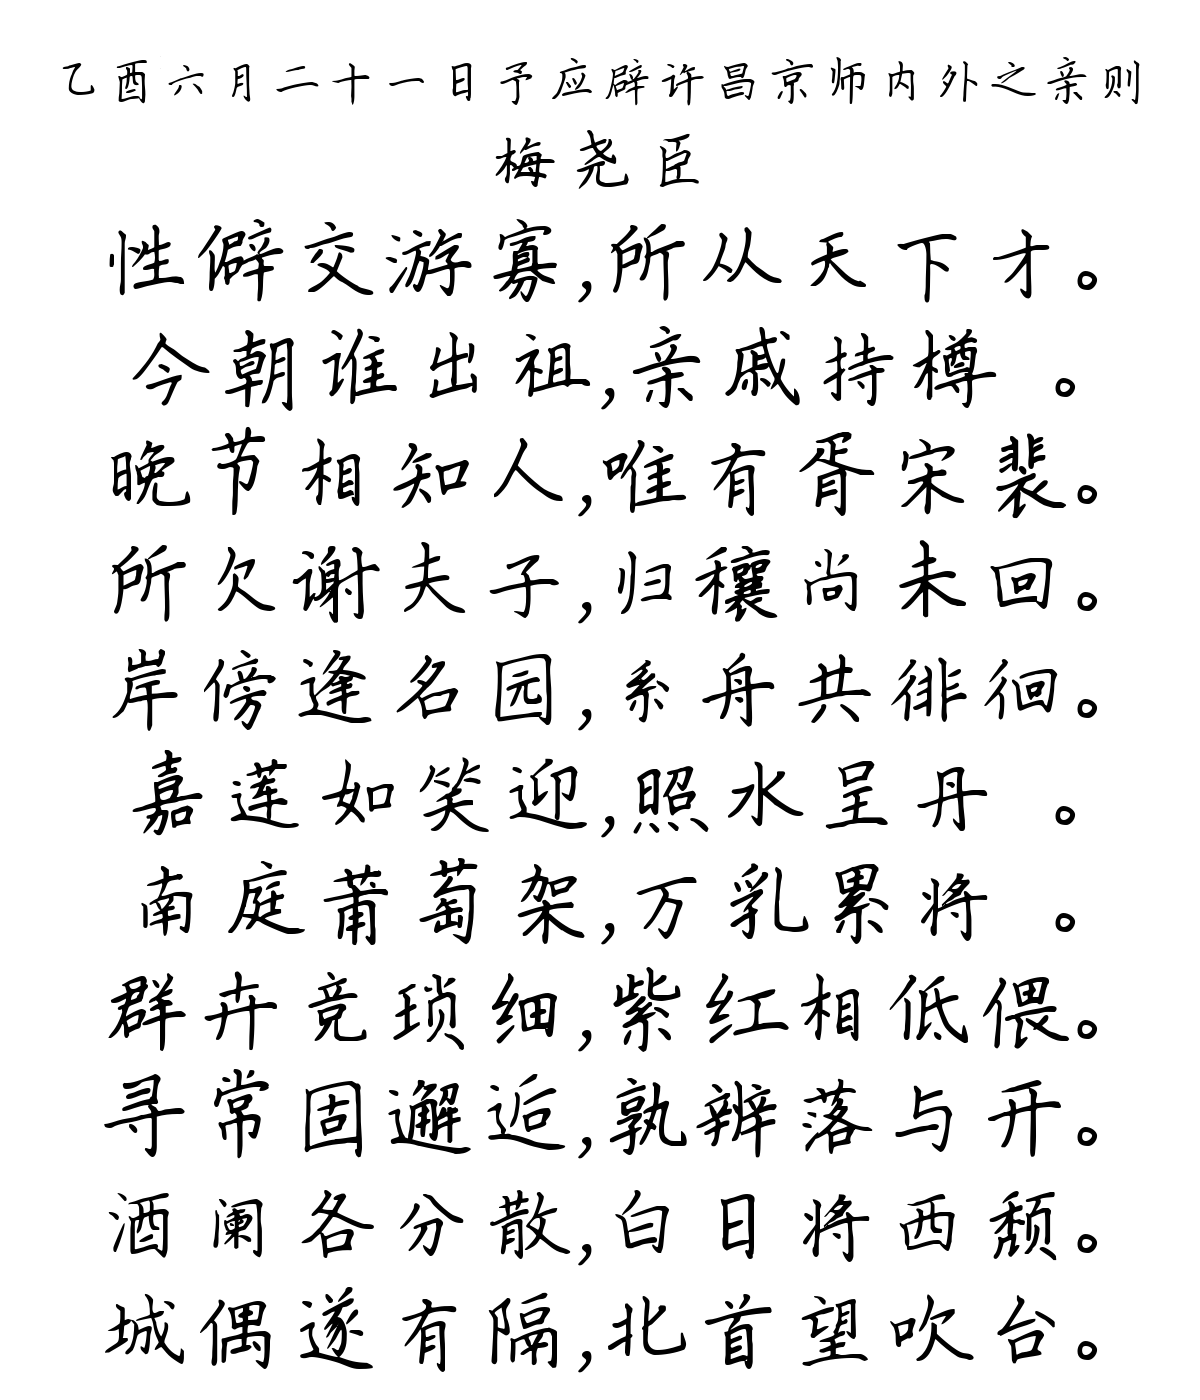 乙酉六月二十一日予应辟许昌京师内外之亲则
梅尧臣
性僻交游寡,所从天下才。
今朝谁出祖,亲戚持樽 。
晚节相知人,唯有胥宋裴。
所欠谢夫子,归穰尚未回。
岸傍逢名园,系舟共徘徊。
嘉莲如笑迎,照水呈丹 。
南庭莆萄架,万乳累将 。
群卉竞琐细,紫红相低偎。
寻常固邂逅,孰辨落与开。
酒阑各分散,白日将西颓。
城偶遂有隔,北首望吹台。